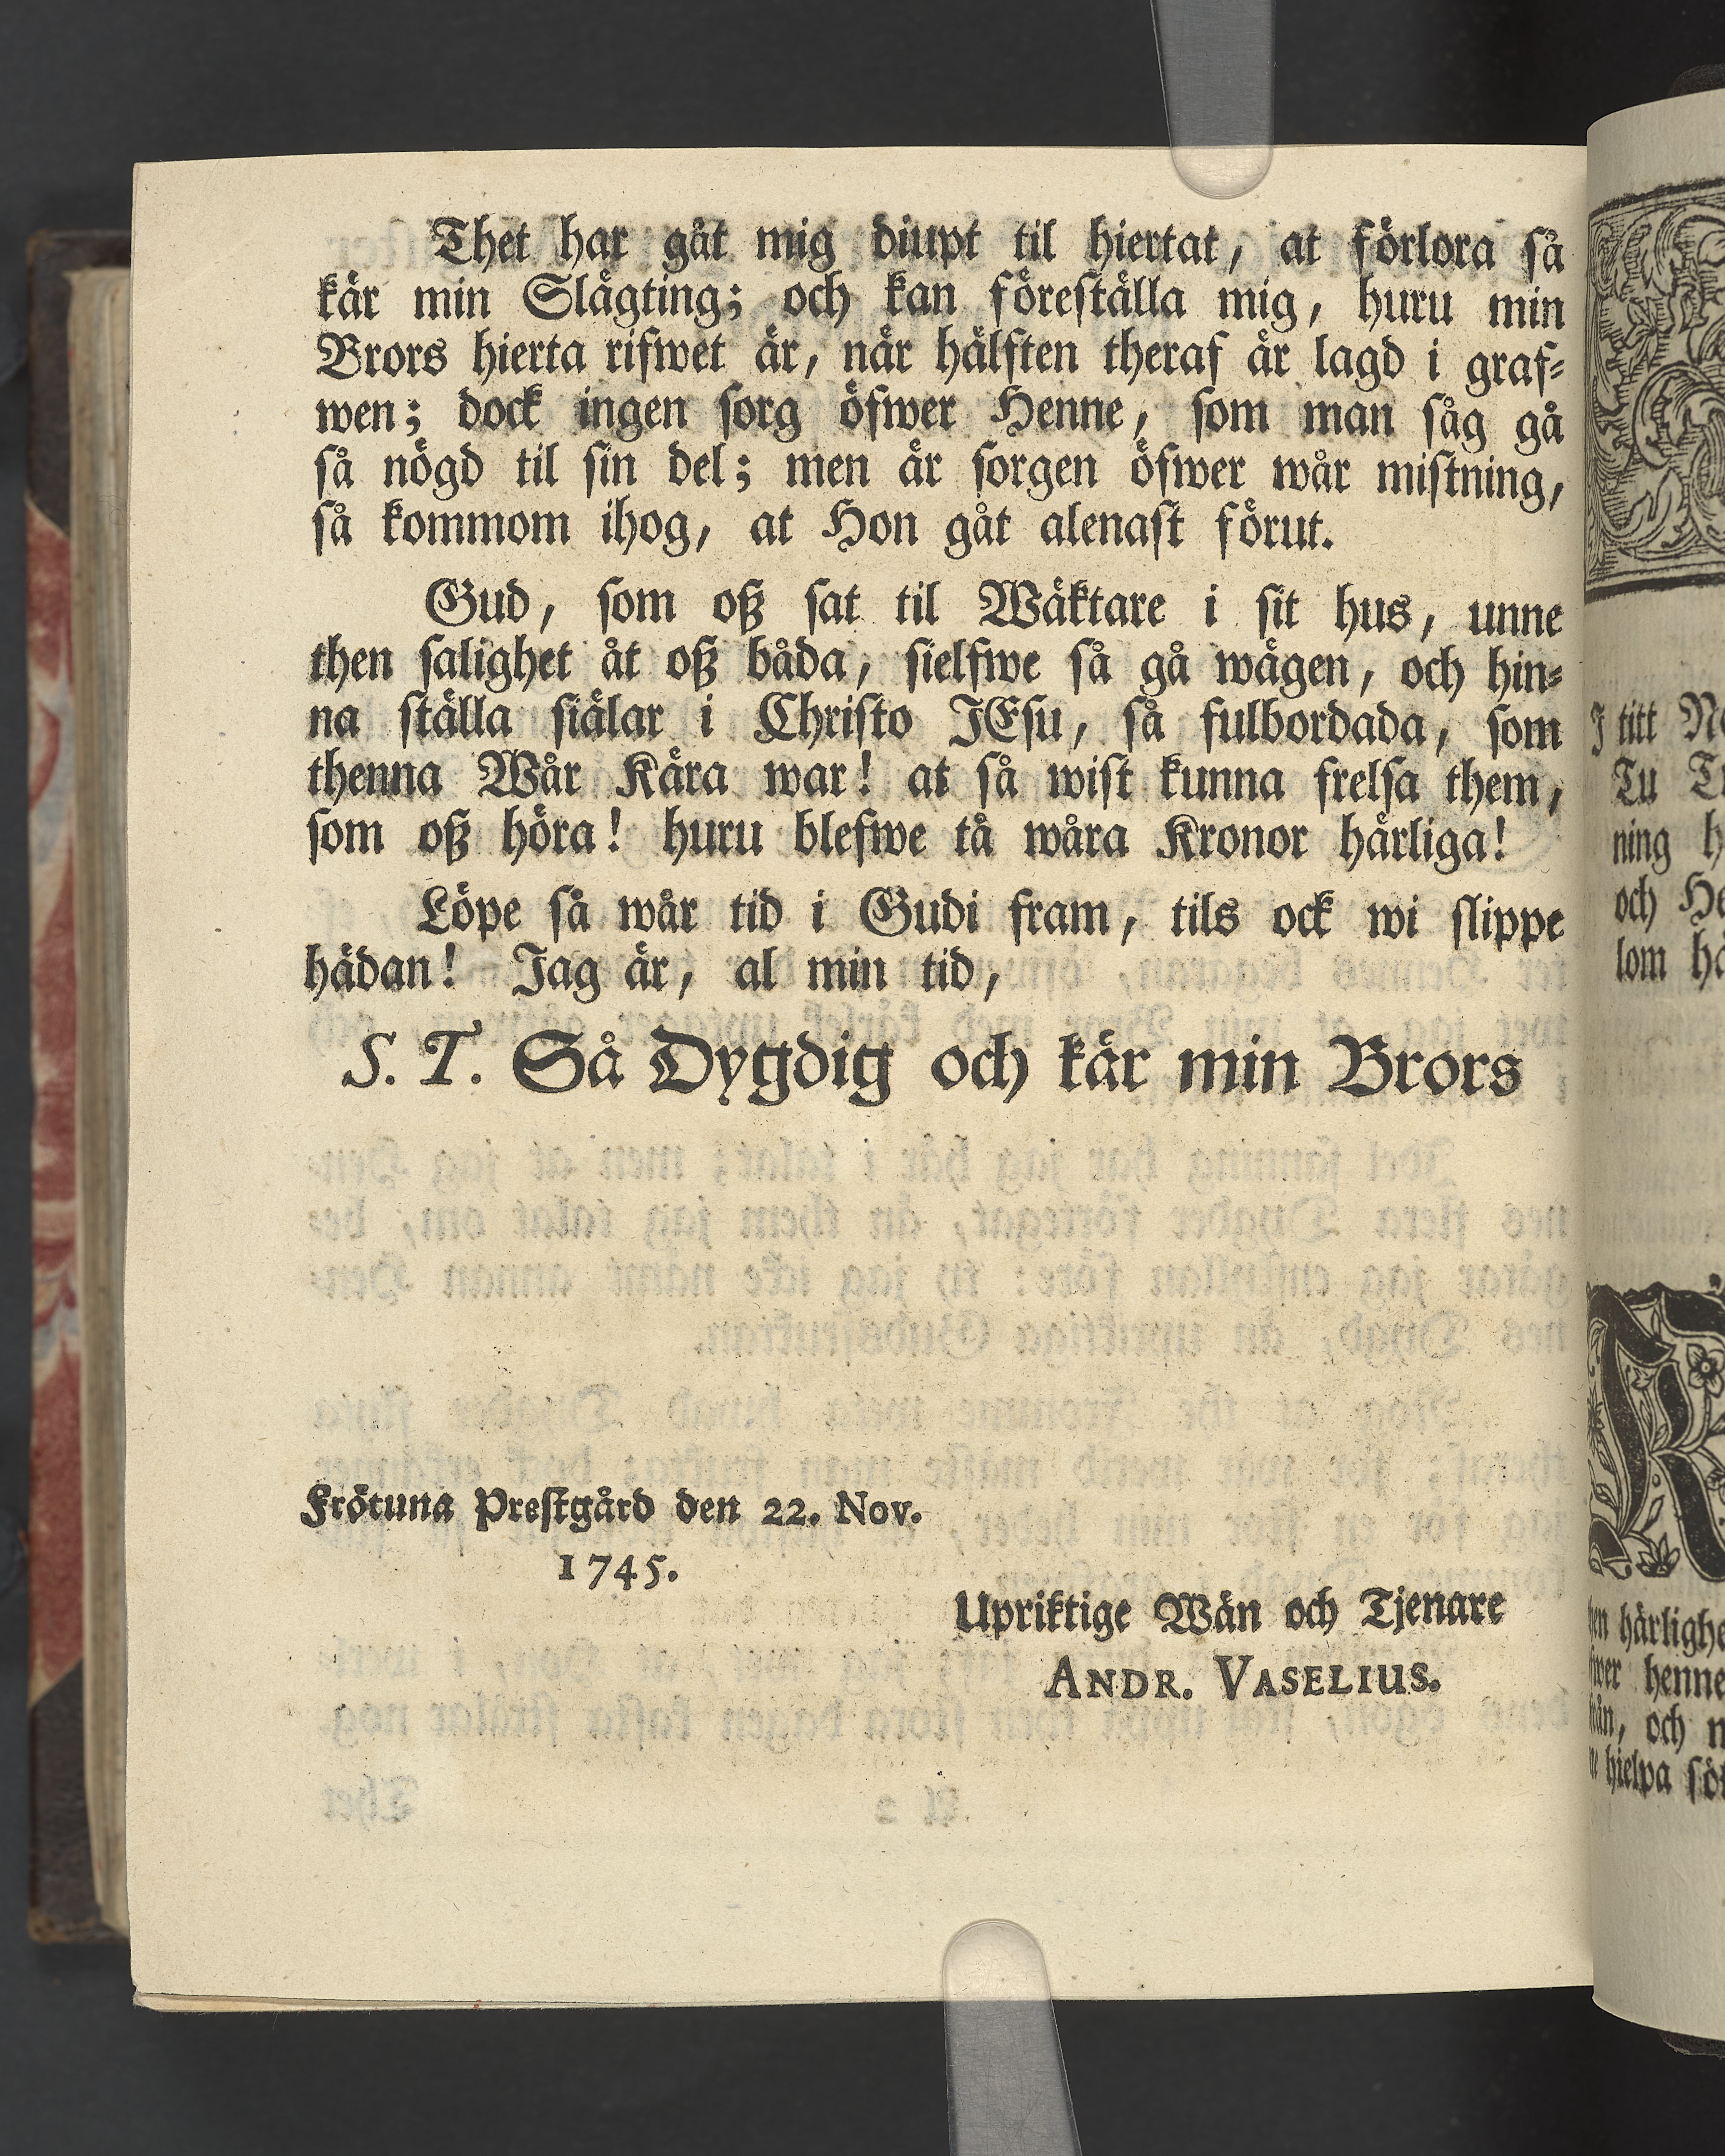 Thet har gåt mig diupt til hiertat, at förlora så
kär min Slägting; och kan föreställa mig, huru min
Brors hierta rifwet är, när hälften theraf är lagd i graf⸗
wen; dock ingen sorg öfwer Henne, som man såg gå
så nögd til sin del; men är sorgen öfwer wår mistning,
så kommom ihog, at Hon gåt alenast förut.
Gud, som oß sat til Wäktare i sit hus, unne
then salighet åt oß båda, sielfwe så gå wägen, och hin⸗
na ställa siälar i Christo JEsu, så fulbordada, som
thenna Wår Kära war! at så wist kunna frelsa them,
som oß höra! huru blefwe tå wåra Kronor härliga!
Löpe så wår tid i Gudi fram, tils ock wi slippe
hädan! Jag är, al min tid,
S. T. Så Dygdig och kär min Brors
Frötuna Prestgård den 22. Nov.
1745.
Upriktige Wän och Tjenare
ANDR. VASELIUS.
J titt
Tu
ning
och
lom
härlighe
henne
och
hielpa